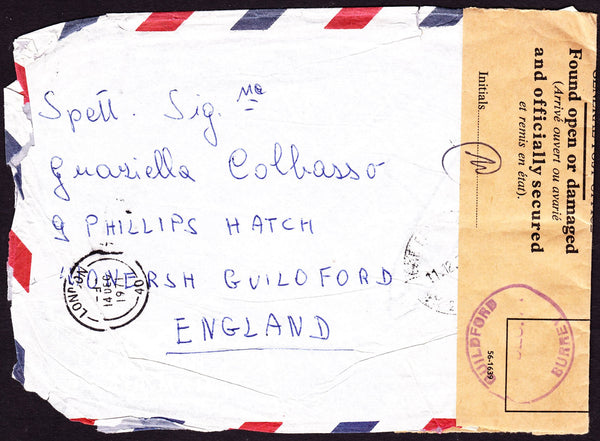 Spett. Sig.na
Graziella Colbasso
9 PHILLIPS HATCH
WONERSH GUILDFORD
ENGLAND
LONDON
14 DEC
197
40
11.12.
GENERAL POST OFFICE
Found open or damaged
(Arrivé ouvert ou avarié
and officially secured
et remis en état).
Initials
GUILDFORD
SURREY
56-1639